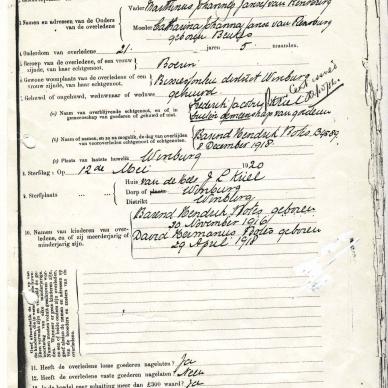 Vader Marthinus Johannes Janse van Rensburg
Namen en adressen van de Ouders
van de overledene
Moeder Catharina Johanna Janse van Rensburg
geboren Beukes
Ouderdom van overledene 21 jaren 5 maanden.
Beroep van de overledene, of een vrouw
zijnde, van haar echtgenoot. Boerin
Gewone woonplaats van de overledene of een vrouw
zijnde, van haar echtgenoot distrikt Winburg
Gehuwd of ongehuwd, weduwnaar of weduwe gehuwd
(a) Naam van overblijvende echtgenoot, en of in
gemeenschap van goederen gehuwd of niet. Frederik Jacobus
buiten gemeenschap van goederen
(b) Naam of namen, en zo na mogelik, de dag van overlijden
van vooroverleden echtgenoot of echtgenoten. Barend Hendrik Botes
8 December 1918
(c) Plaats van laatste huwelik Winburg
8. Sterfdag: Op 12de Mei 1920
9. Sterfplaats
Huis van de Heer J C Kriel
Dorp of plaats Winburg
Distrikt Winburg
10. Namen van kinderen van over-
ledene, en of zij meerderjarig of
minderjarig zijn.
Barend Hendrik Botes geboren
30 November 1916
David Hermanus Botes geboren
29 April 1918
11. Heeft de overledene losse goederen nagelaten? Ja
12. Heeft de overledene vaste goederen nagelaten? Neen
13. Is de boedel naar schatting meer dan £300 waard? Ja